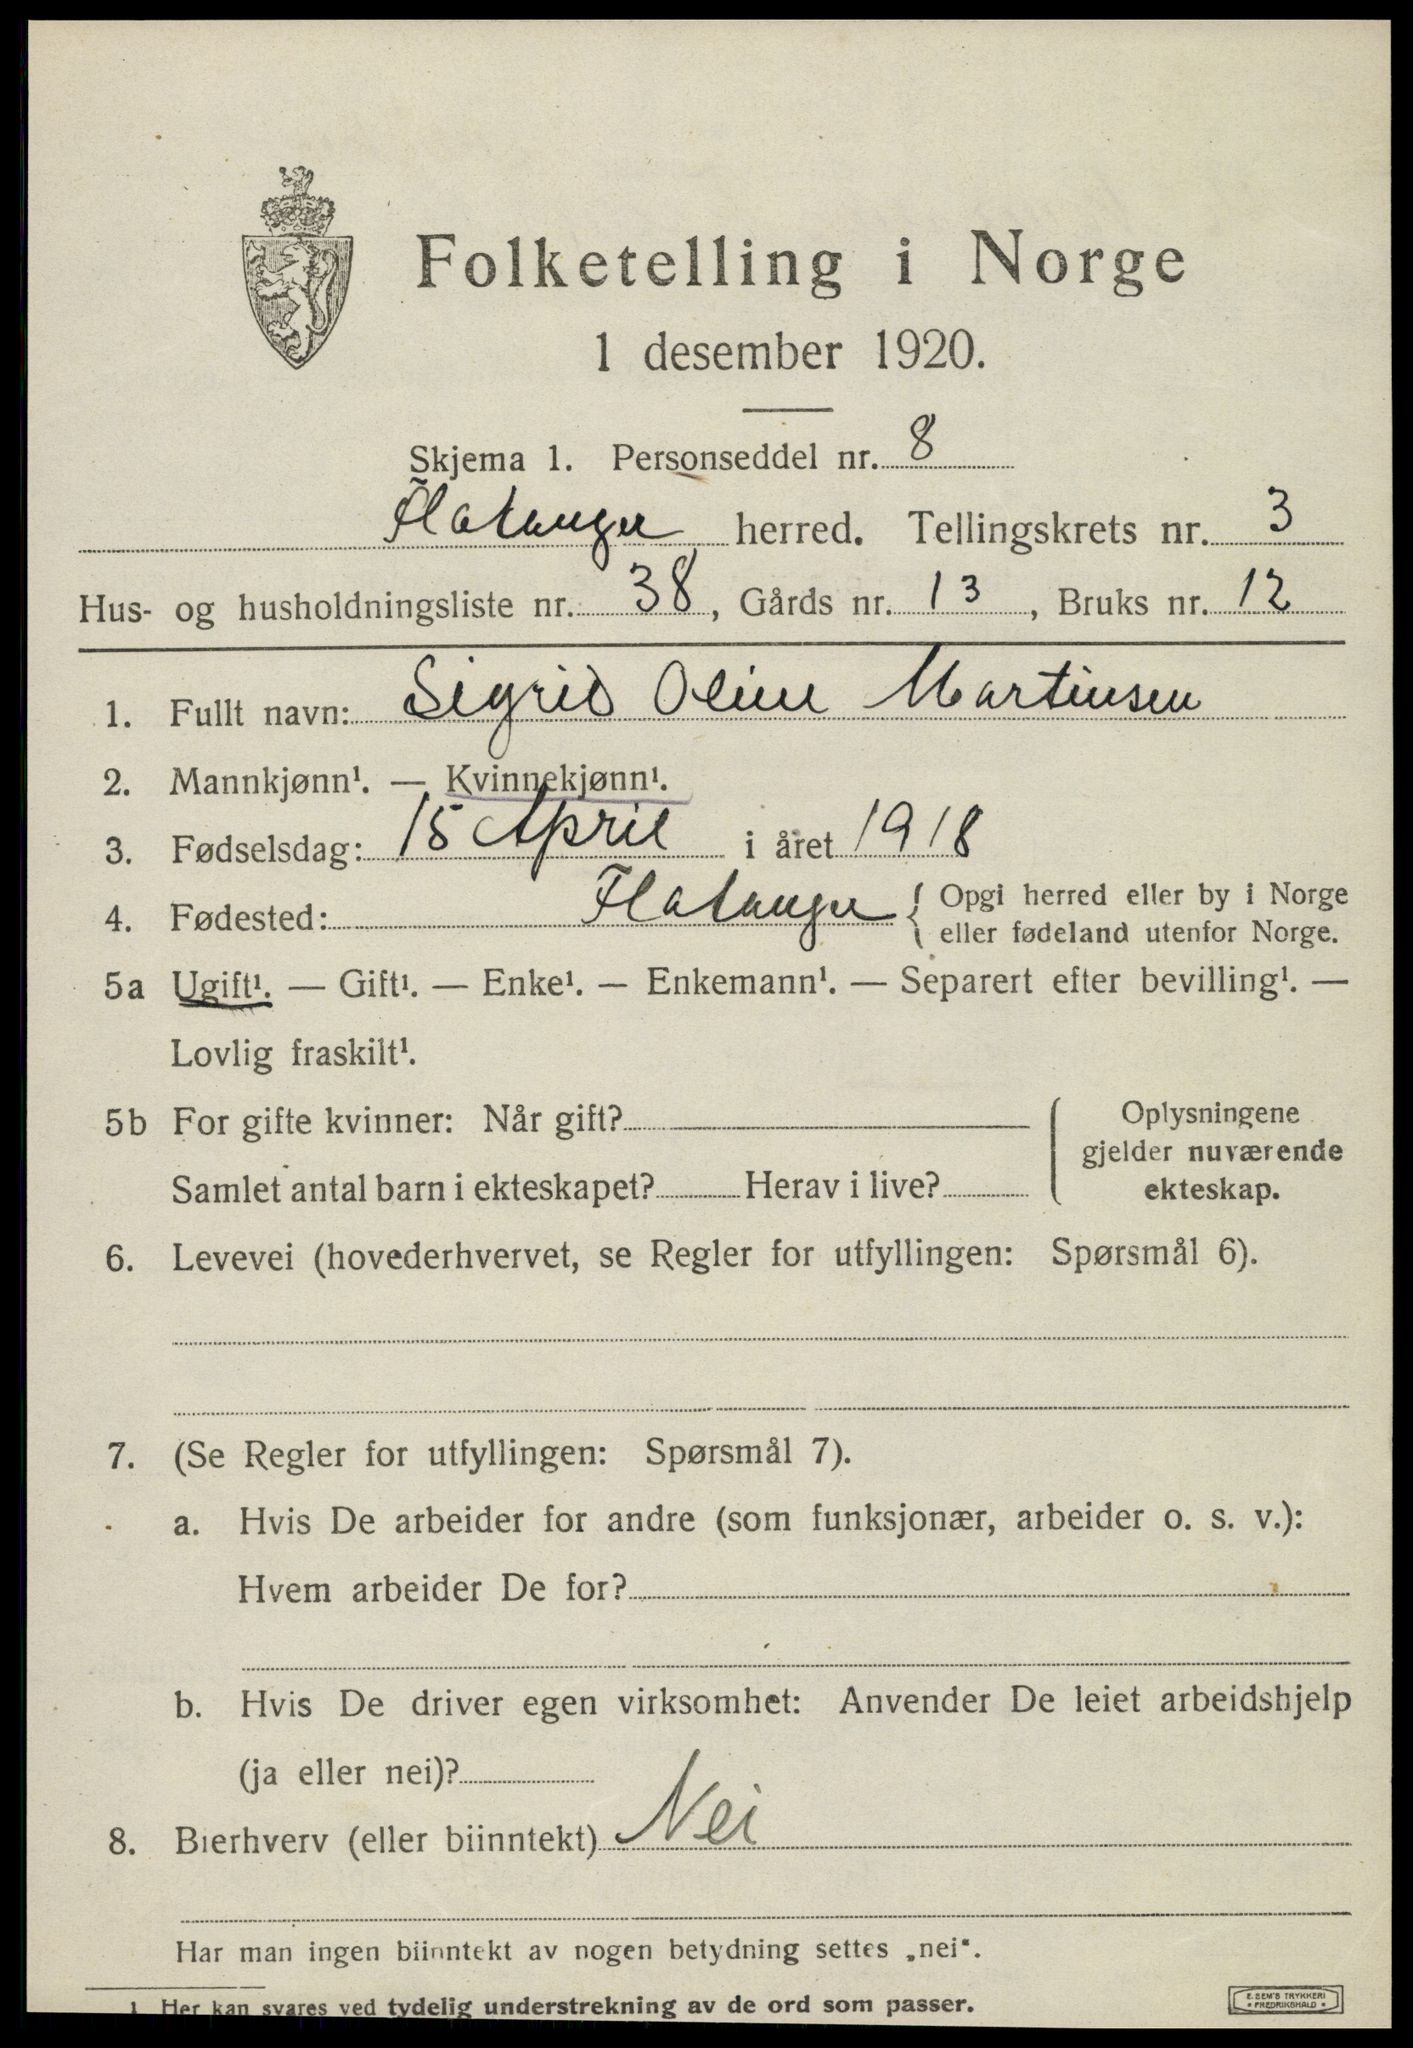 Folketelling i Norge
1 desember 1920.
Skjema 1. Personseddel nr. 8
Flatanger herred. Tellingskrets nr. 3
Hus- og husholdningsliste nr. 38, Gårds nr. 13, Bruks nr. 12
1. Fullt navn: Sigrid Oline Martinsen
2. Mannkjønn¹. — Kvinnekjønn¹.
3. Fødselsdag: 15 April i året 1918
4. Fødested: Flatanger { Opgi herred eller by i Norge
eller fødeland utenfor Norge.
5a Ugift¹. — Gift¹. — Enke¹. — Enkemann¹. — Separert efter bevilling¹. —
Lovlig fraskilt¹.
5b For gifte kvinner: Når gift?
Samlet antal barn i ekteskapet? Herav i live?
Oplysningene
gjelder nuværende
ekteskap.
6. Levevei (hovederhvervet, se Regler for utfyllingen: Spørsmål 6).
7. (Se Regler for utfyllingen: Spørsmål 7).
a. Hvis De arbeider for andre (som funksjonær, arbeider o. s. v.):
Hvem arbeider De for?
b. Hvis De driver egen virksomhet: Anvender De leiet arbeidshjelp
(ja eller nei)?
8. Bierhverv (eller biinntekt) Nei
Har man ingen biinntekt av nogen betydning settes „nei“.
1 Her kan svares ved tydelig understrekning av de ord som passer.
E. SEM'S TRYKKERI
• FREDRIKSHALD •